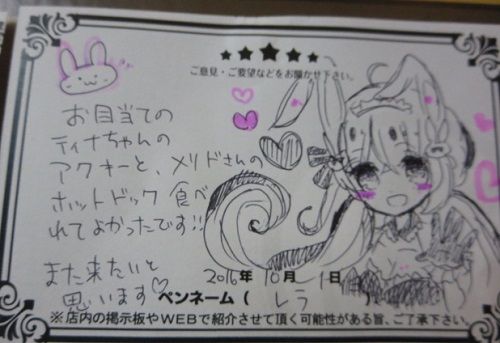 ★★★★★
ご意見・ご要望などをお聞かせ下さい。
お目当ての
ティナちゃんの
アクキーと、メリドさんの
ホットドック 食べ
れてよかったです!!
また来たいと
思います♡
2016年 10月 1日
ペンネーム ( レラ
※店内の掲示板やWEBで紹介させて頂く可能性がある旨、ご了承下さい。